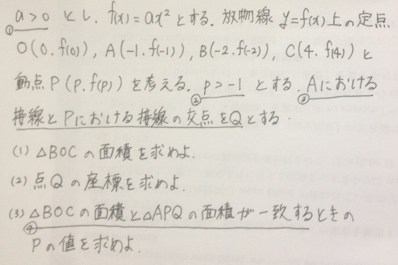 a>0 とし、f(x)=ax²とする。放物線 y=f(x)上の定点
①
O(0,f(0)), A(-1,f(-1)), B(-2,f(-2)), C(4,f(4))と
動点P(p,f(p))を考える。p>-1 とする。Aにおける
② ③
接線とPにおける接線の交点をQとする。
(1) △BOCの面積を求めよ。
(2) 点Qの座標を求めよ。
(3) △BOCの面積と△APQの面積が一致するときの
④
Pの値を求めよ。